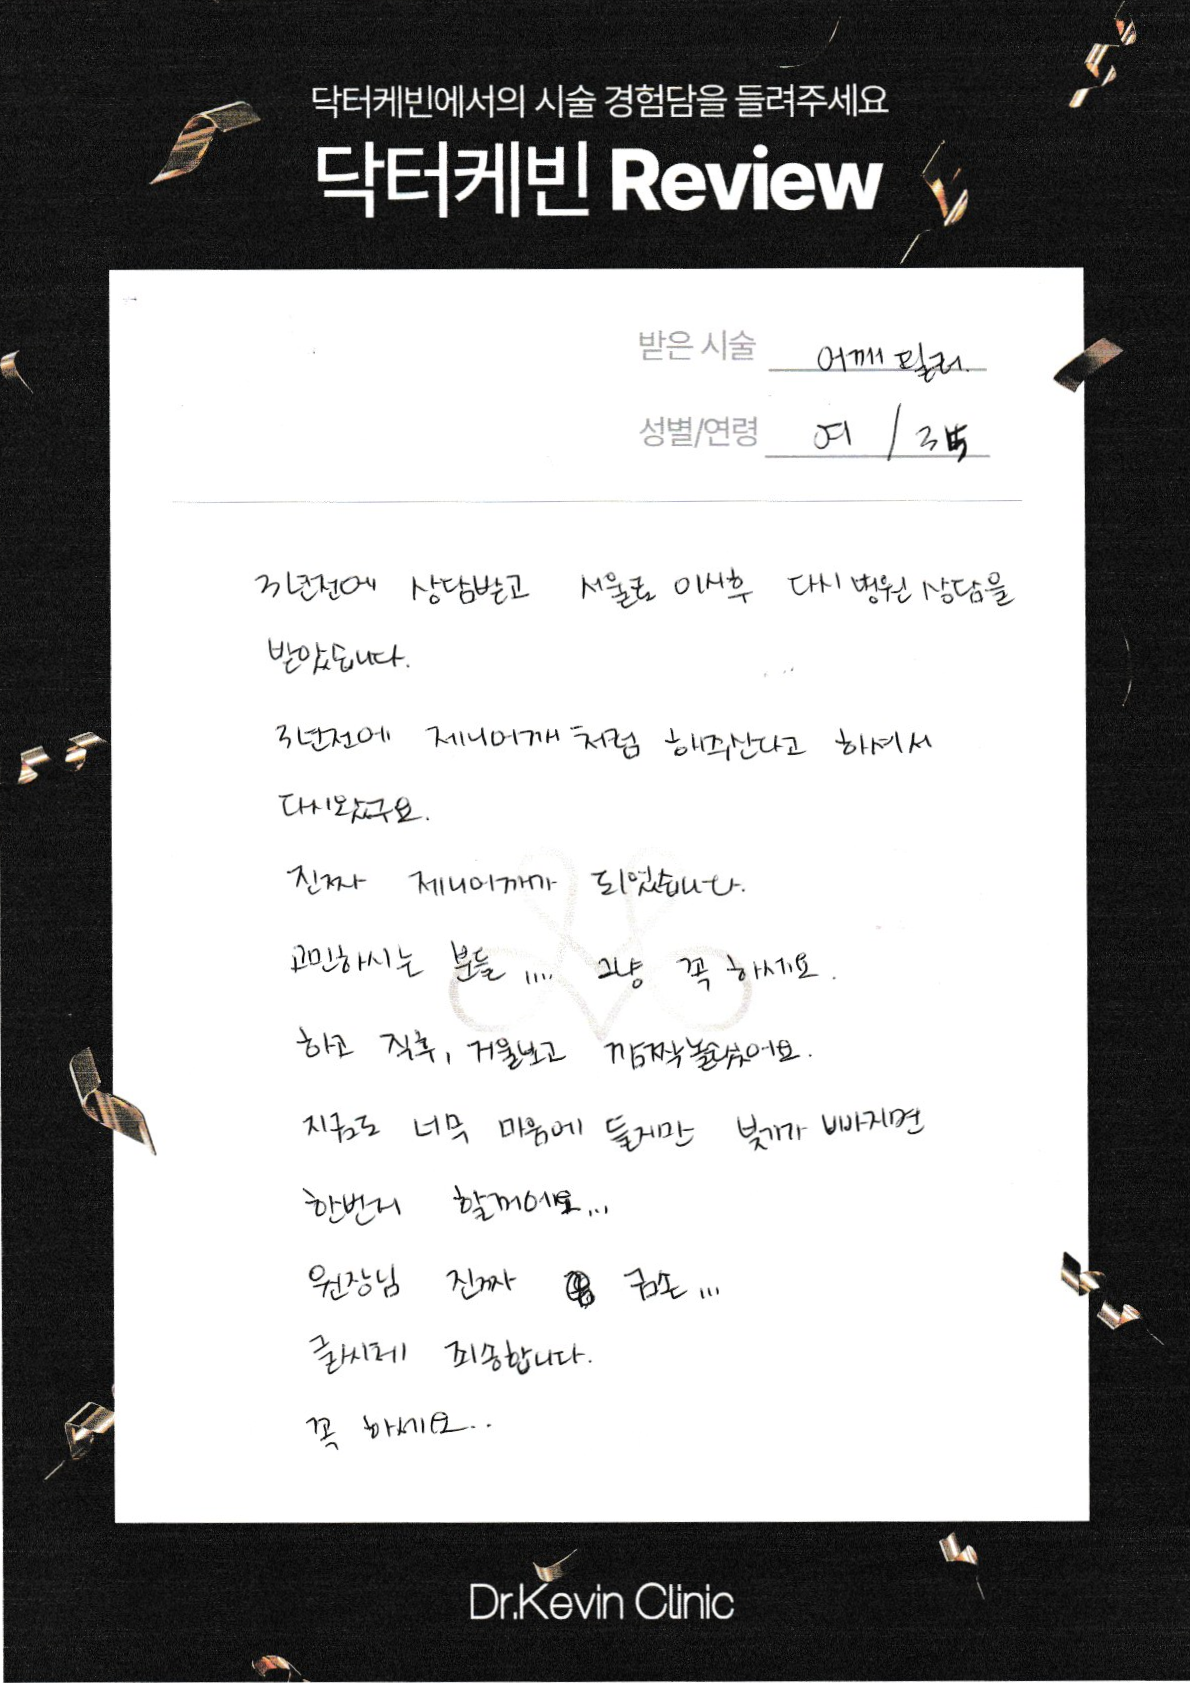 닥터케빈에서의 시술 경험담을 들려주세요
닥터케빈 Review
받은 시술 어깨 필러.
성별/연령 여 / 35
3년전에 상담받고 서울로 이사후 다시 병원 상담을
받았습니다.
3년전에 제니어깨 처럼 해주신다고 하셔서
다시왔구요.
진짜 제니어깨가 되었습니다.
고민하시는 분들 .... 그냥 꼭 하세요.
하고 직후, 거울보고 깜짝놀랬어요.
지금도 너무 마음에 들지만 붓기가 빠지면
한번더 할꺼에요...
원장님 진짜 금손...
글씨체 죄송합니다.
꼭 하세요..
Dr.Kevin Clinic